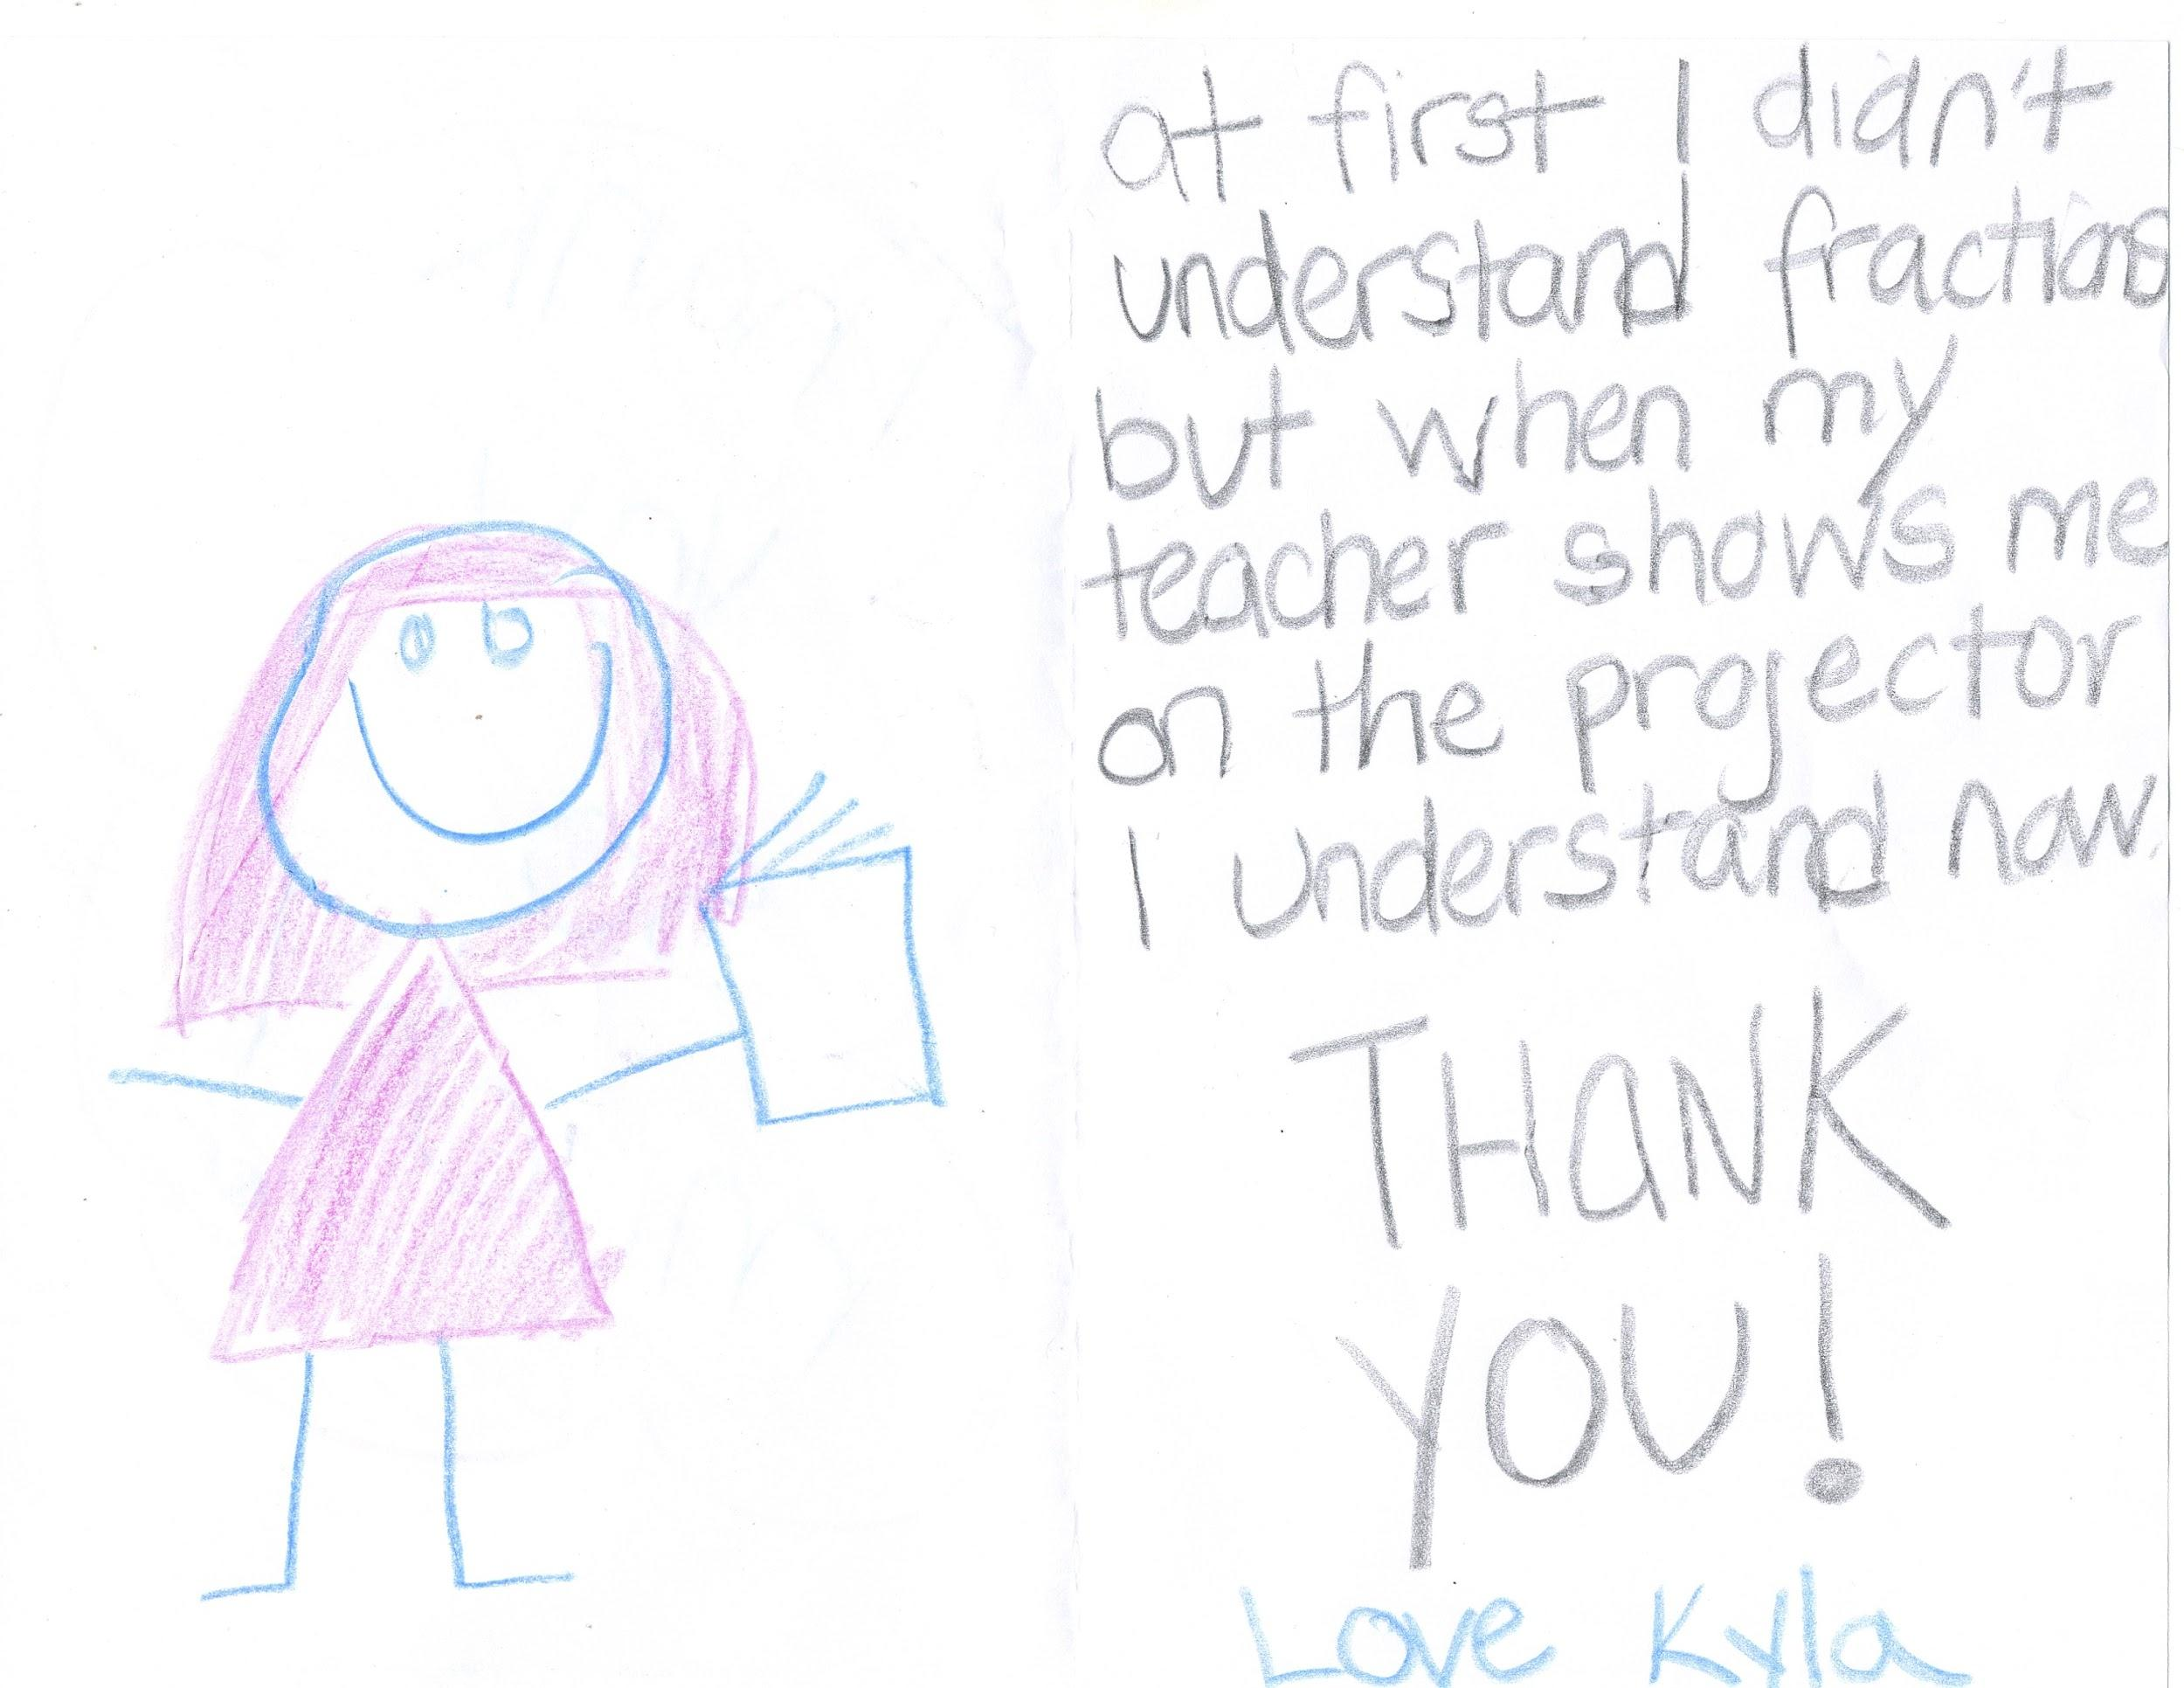 at first I didn't
understand fractions
but when my
teacher shows me
on the projector
I understand now.
THANK
YOU!
Love Kyla